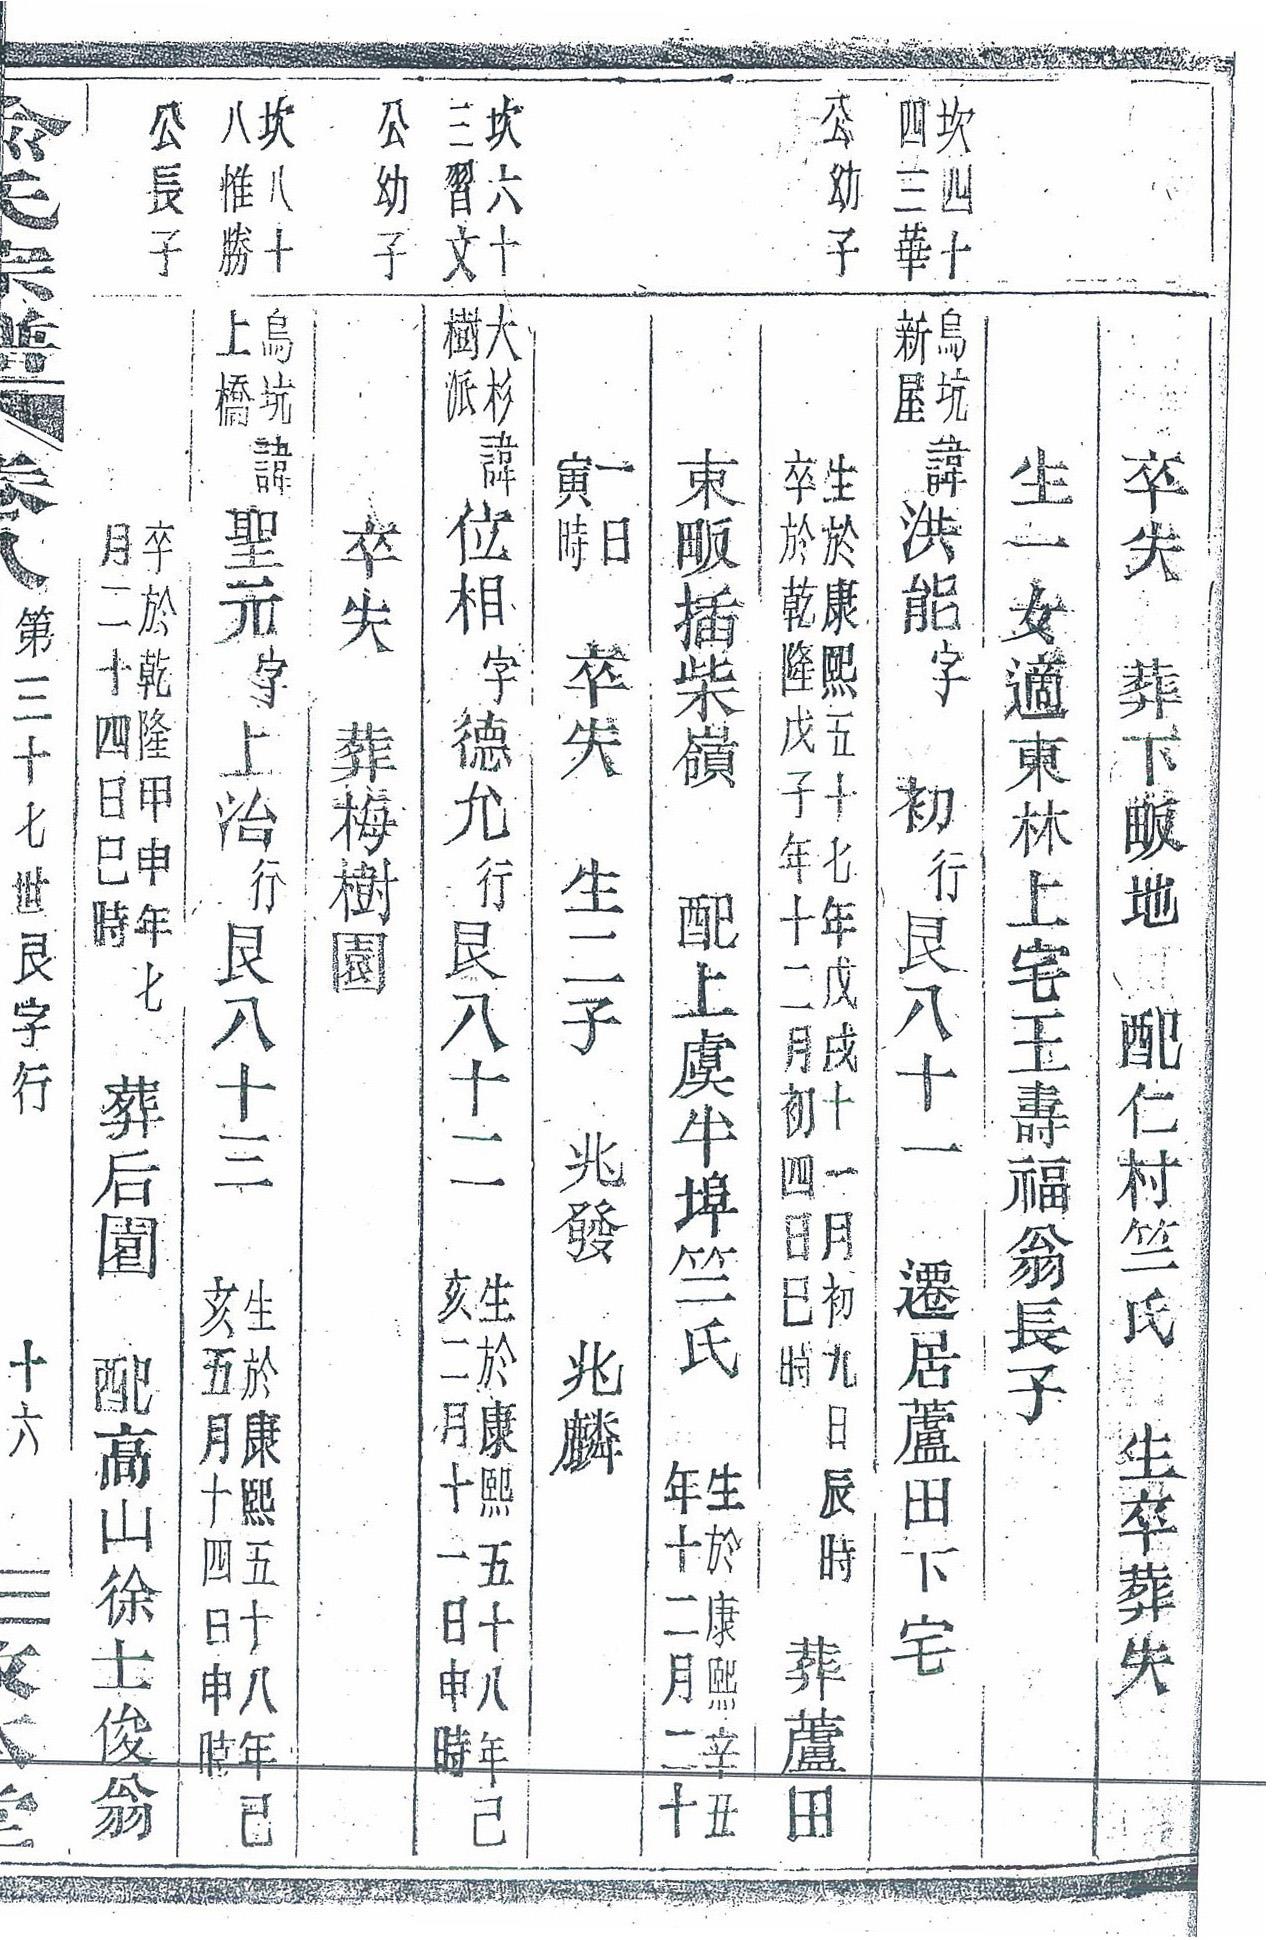 卒失　葬下畈地　配仁村竺氏　生卒葬失
生一女適東林上宅王壽福翁長子
坎四十
四三華
烏坑
新屋
諱洪能字　初行艮八十一　遷居蘆田下宅
公幼子
生於康熙五十七年戊戌十一月初九日辰時
卒於乾隆戊子年十二月初四日巳時
葬蘆田
東畈插柴嶺　配上虞牛埠竺氏
生於康熙辛丑
年十二月二十
一日
寅時
卒失　生二子　兆發　兆麟
坎六十
三習文
大杉
樹派
諱位相字德允行艮八十二
生於康熙五十八年己
亥二月十一日申時
公幼子
卒失　葬梅樹園
坎八十
八惟勝
烏坑
上橋
諱聖元字上治行艮八十三
生於康熙五十八年己
亥五月十四日申時
公長子
卒於乾隆甲申年七
月二十四日巳時
葬后園　配高山徐士俊翁
氏宗譜　卷八　第三十七世艮字行　十六